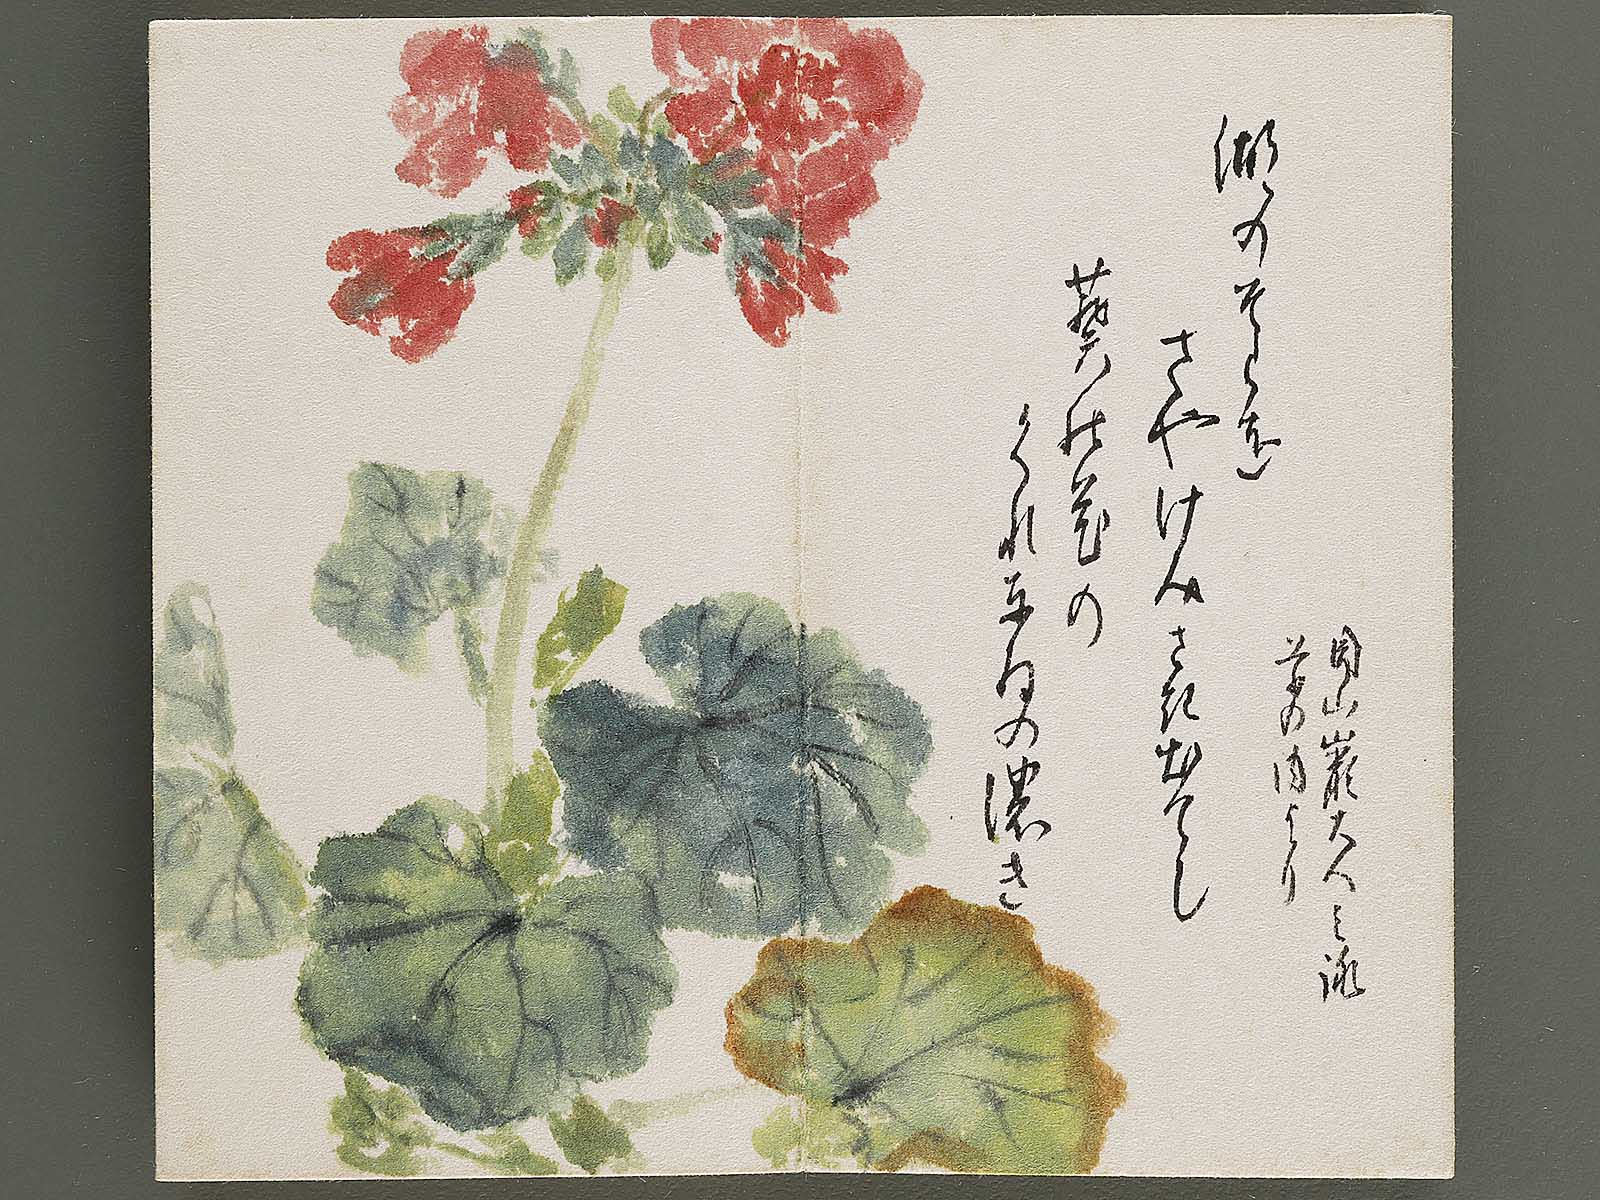 岡山巌大人之詠
の内より
湖のそらを
さやけみさき出でし
葵の花の
くれなゐの濃き